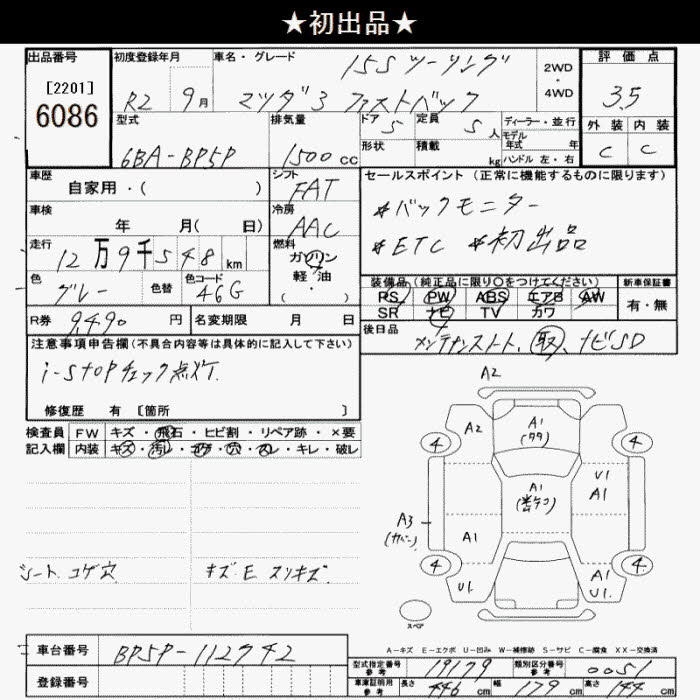 ★初出品★
出品番号
[2201]
6086
初度登録年月
R2 9月
車名・グレード
15Sツーリング
マツダ3 ファストバック
2WD
・
4WD
評価点
3.5
外装 内装
C C
型式
6BA-BP5P
排気量
1500cc
ドア 5
定員 5人
ディーラー・並行
モデル
年式 年
形状
積載 kg
ハンドル 左・右
車歴
自家用・( )
シフト
FAT
車検
年 月( 日)
冷房
AAC
走行
12万9千548km
燃料
ガソリン
軽・油
( ・ )
色
グレー
色替
色コード
46G
セールスポイント(正常に機能するものに限ります)
*バックモニター
*ETC *初出品
装備品(純正品に限り○をつけてください)
新車保証書
PS PW ABS エアB AW
SR ナビ TV カワ
有・無
R券 9,490円
名変期限 月 日
後日品
メンテナンスノート、取、ナビSD
注意事項申告欄(不具合内容等は具体的に記入して下さい)
i-stopチェック点灯.
修復歴 有 [箇所 ]
検査員
記入欄
FW キズ・飛石・ヒビ割・リペア跡・×要
内装 キズ・汚レ・コゲ・穴・スレ・キレ・破レ
シート コゲ穴
キズ E スリキズ
A2
A2
A1
4
4
A1
U1
A1
A3
A1
4
4
U1.
A1
U1.
スペア
A-キズ E-エクボ U-凹み W-補修跡 S-サビ C-腐食 XX-交換済
車台番号 BP5P-112742
登録番号
型式指定番号
参考
19179
類別区分番号
参考
0051
車庫証明用
参考
長さ 446cm 幅 179cm 高さ 144cm